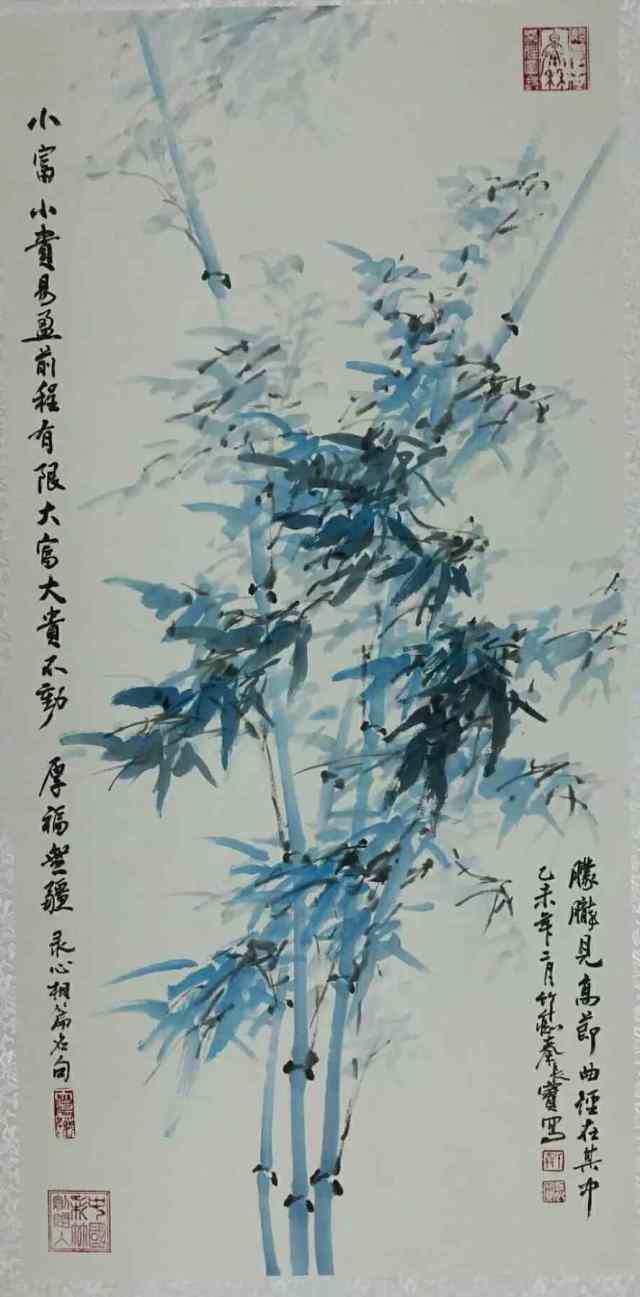 朦朧見高節曲徑在其中
乙未年二月竹寶寫
小富小貴易盈前程有限大富大貴不動厚福無疆录心相篇名句
中國彩竹創始人